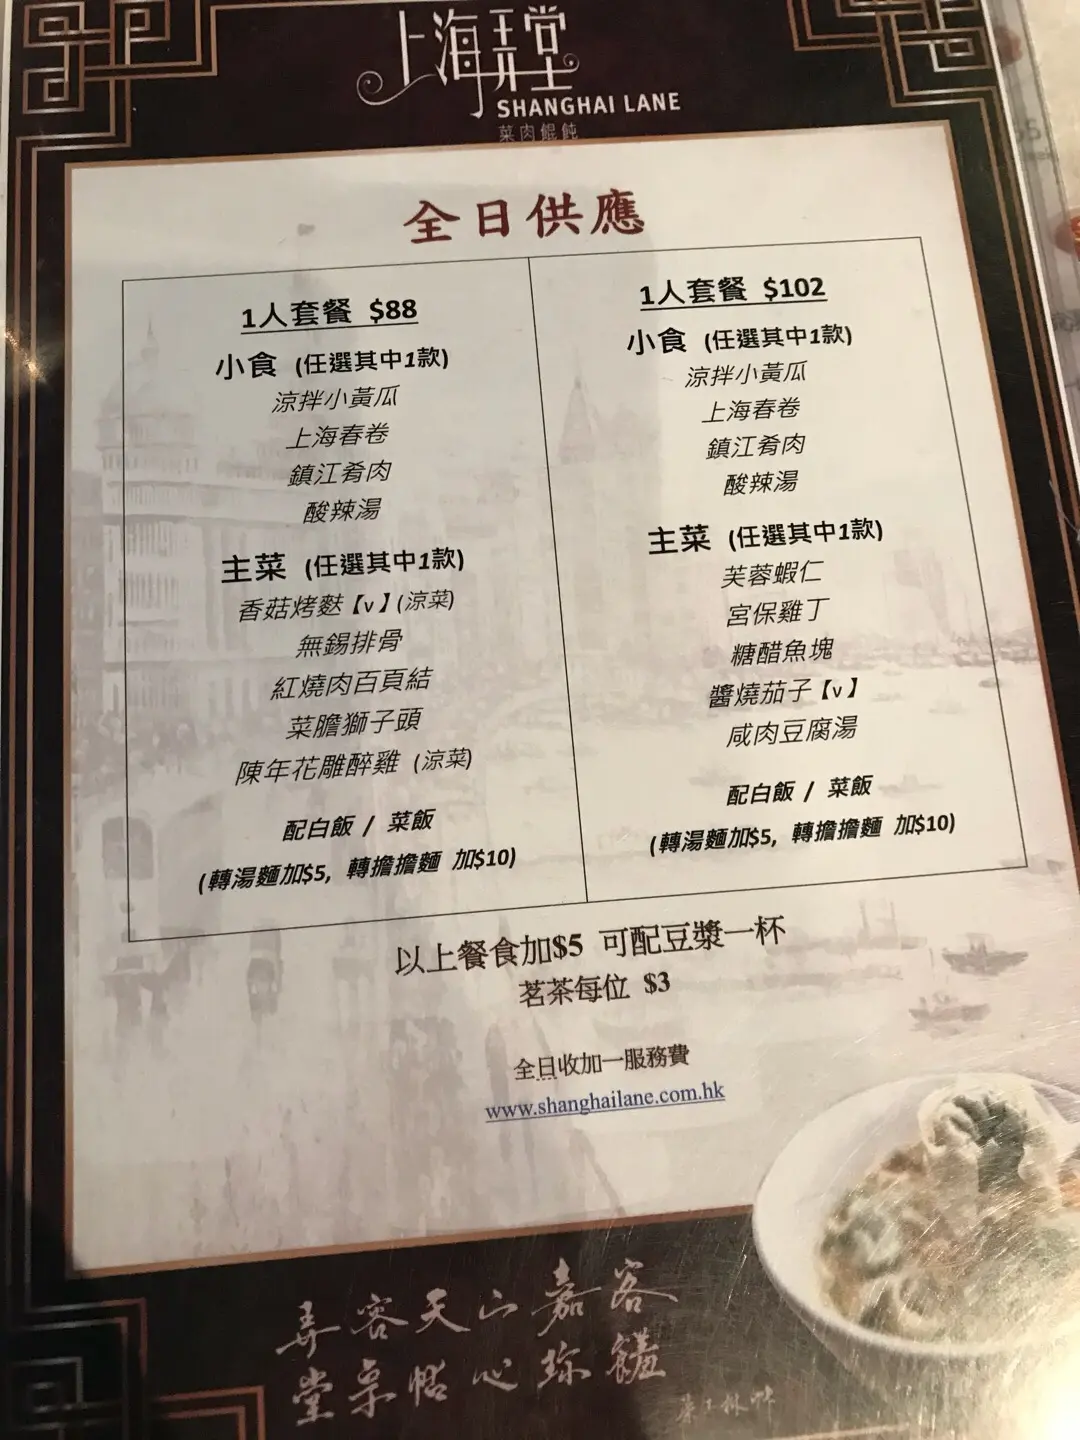 上海弄堂
SHANGHAI LANE
菜肉餛飩
全日供應
1人套餐 $88
小食 (任選其中1款)
涼拌小黃瓜
上海春卷
鎮江肴肉
酸辣湯
主菜 (任選其中1款)
香菇烤麩【v】(涼菜)
無錫排骨
紅燒肉百頁結
菜膽獅子頭
陳年花雕醉雞 (涼菜)
配白飯 / 菜飯
(轉湯麵加$5, 轉擔擔麵 加$10)
1人套餐 $102
小食 (任選其中1款)
涼拌小黃瓜
上海春卷
鎮江肴肉
酸辣湯
主菜 (任選其中1款)
芙蓉蝦仁
宮保雞丁
糖醋魚塊
醬燒茄子【v】
咸肉豆腐湯
配白飯 / 菜飯
(轉湯麵加$5, 轉擔擔麵 加$10)
以上餐食加$5 可配豆漿一杯
茗茶每位 $3
全日收加一服務費
www.shanghailane.com.hk